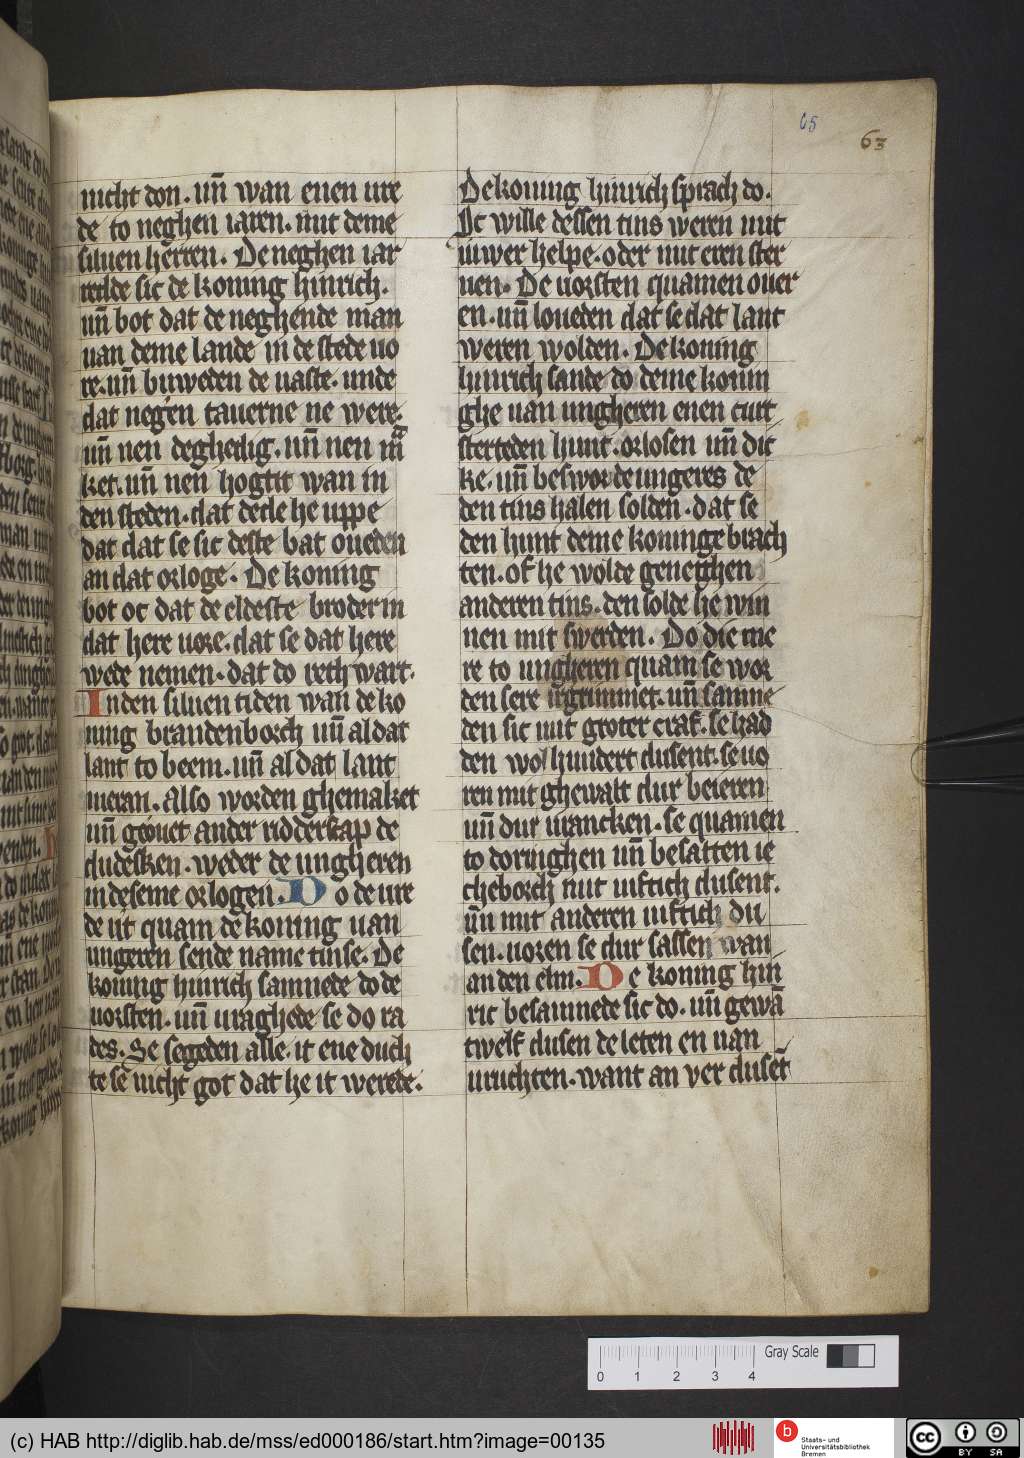 65
63
nicht don. uñ wan enen ure
de to neghen iaren. mit deme
siluen herren. De neghen iar
reilde sic de koning hinrich.
uñ bot dat de neghende man
uan deme lande in de stede uo
re. uñ buweden de uaste. unde
dat negen tauerne ne were.
uñ nen deghedig. uñ nen mᵃr
ket. uñ nen hogtit wan in
den steden. dat dede he uppe
dat dat se sic deste bat oueden
an dat orloge. De koning
bot oc dat de eldeste broder in
dat here uore. dat se dat here
wede nemen. dat do reth wart.
In den siluen tiden wan de ko
ning brandenborch uñ al dat
lant to beem. uñ al dat lant
meran. Also worden ghemaket
uñ geouet ander ridderscap de
dudesken. weder de ungheren
in deseme orlogen. Do de ure
de ut quam de koning uan
ungeren sende name tinse. De
koning hinrich samnede do de
uorsten. uñ uraghede se do ra
des. Se segeden alle. it ene duch
te se nicht got dat he it werede.
De koning hinrich sprach do.
Ic wille dessen tins weren mit
iuwer helpe. oder mit eren ster
uen. De uorsten quamen ouer
en. uñ loueden dat se dat lant
weren wolden. De koning
hinrich sande do deme konin
ghe uan ungheren enen curt
sterteden hunt. orlosen uñ dic
ke. uñ beswor de ungeres de
den tins halen solden. dat se
den hunt deme koninge brach
ten. of he wolde geneghen
anderen tins. den solde he win
nen mit swerden. Do die me
re to ungheren quam se wor
den sere urgrimmet. uñ samne
den sic mit groter craf. se had
den wol hundert dusent. se uo
ren mit ghewalt dur beieren
uñ dur urancken. se quamen
to doringhen uñ besatten ie
cheborch mit uiftich dusent.
uñ mit anderen uiftich du
sen. uoren se dur sassen wan
an den elm. De koning hin
ric besamnede sic do. uñ gewā
twelf dusen de leten en uan
uruchten. want an ver duset
Gray Scale
0 1 2 3 4
(c) HAB http://diglib.hab.de/mss/ed000186/start.htm?image=00135
b
Staats- und
Universitätsbibliothek
Bremen
cc
BY SA